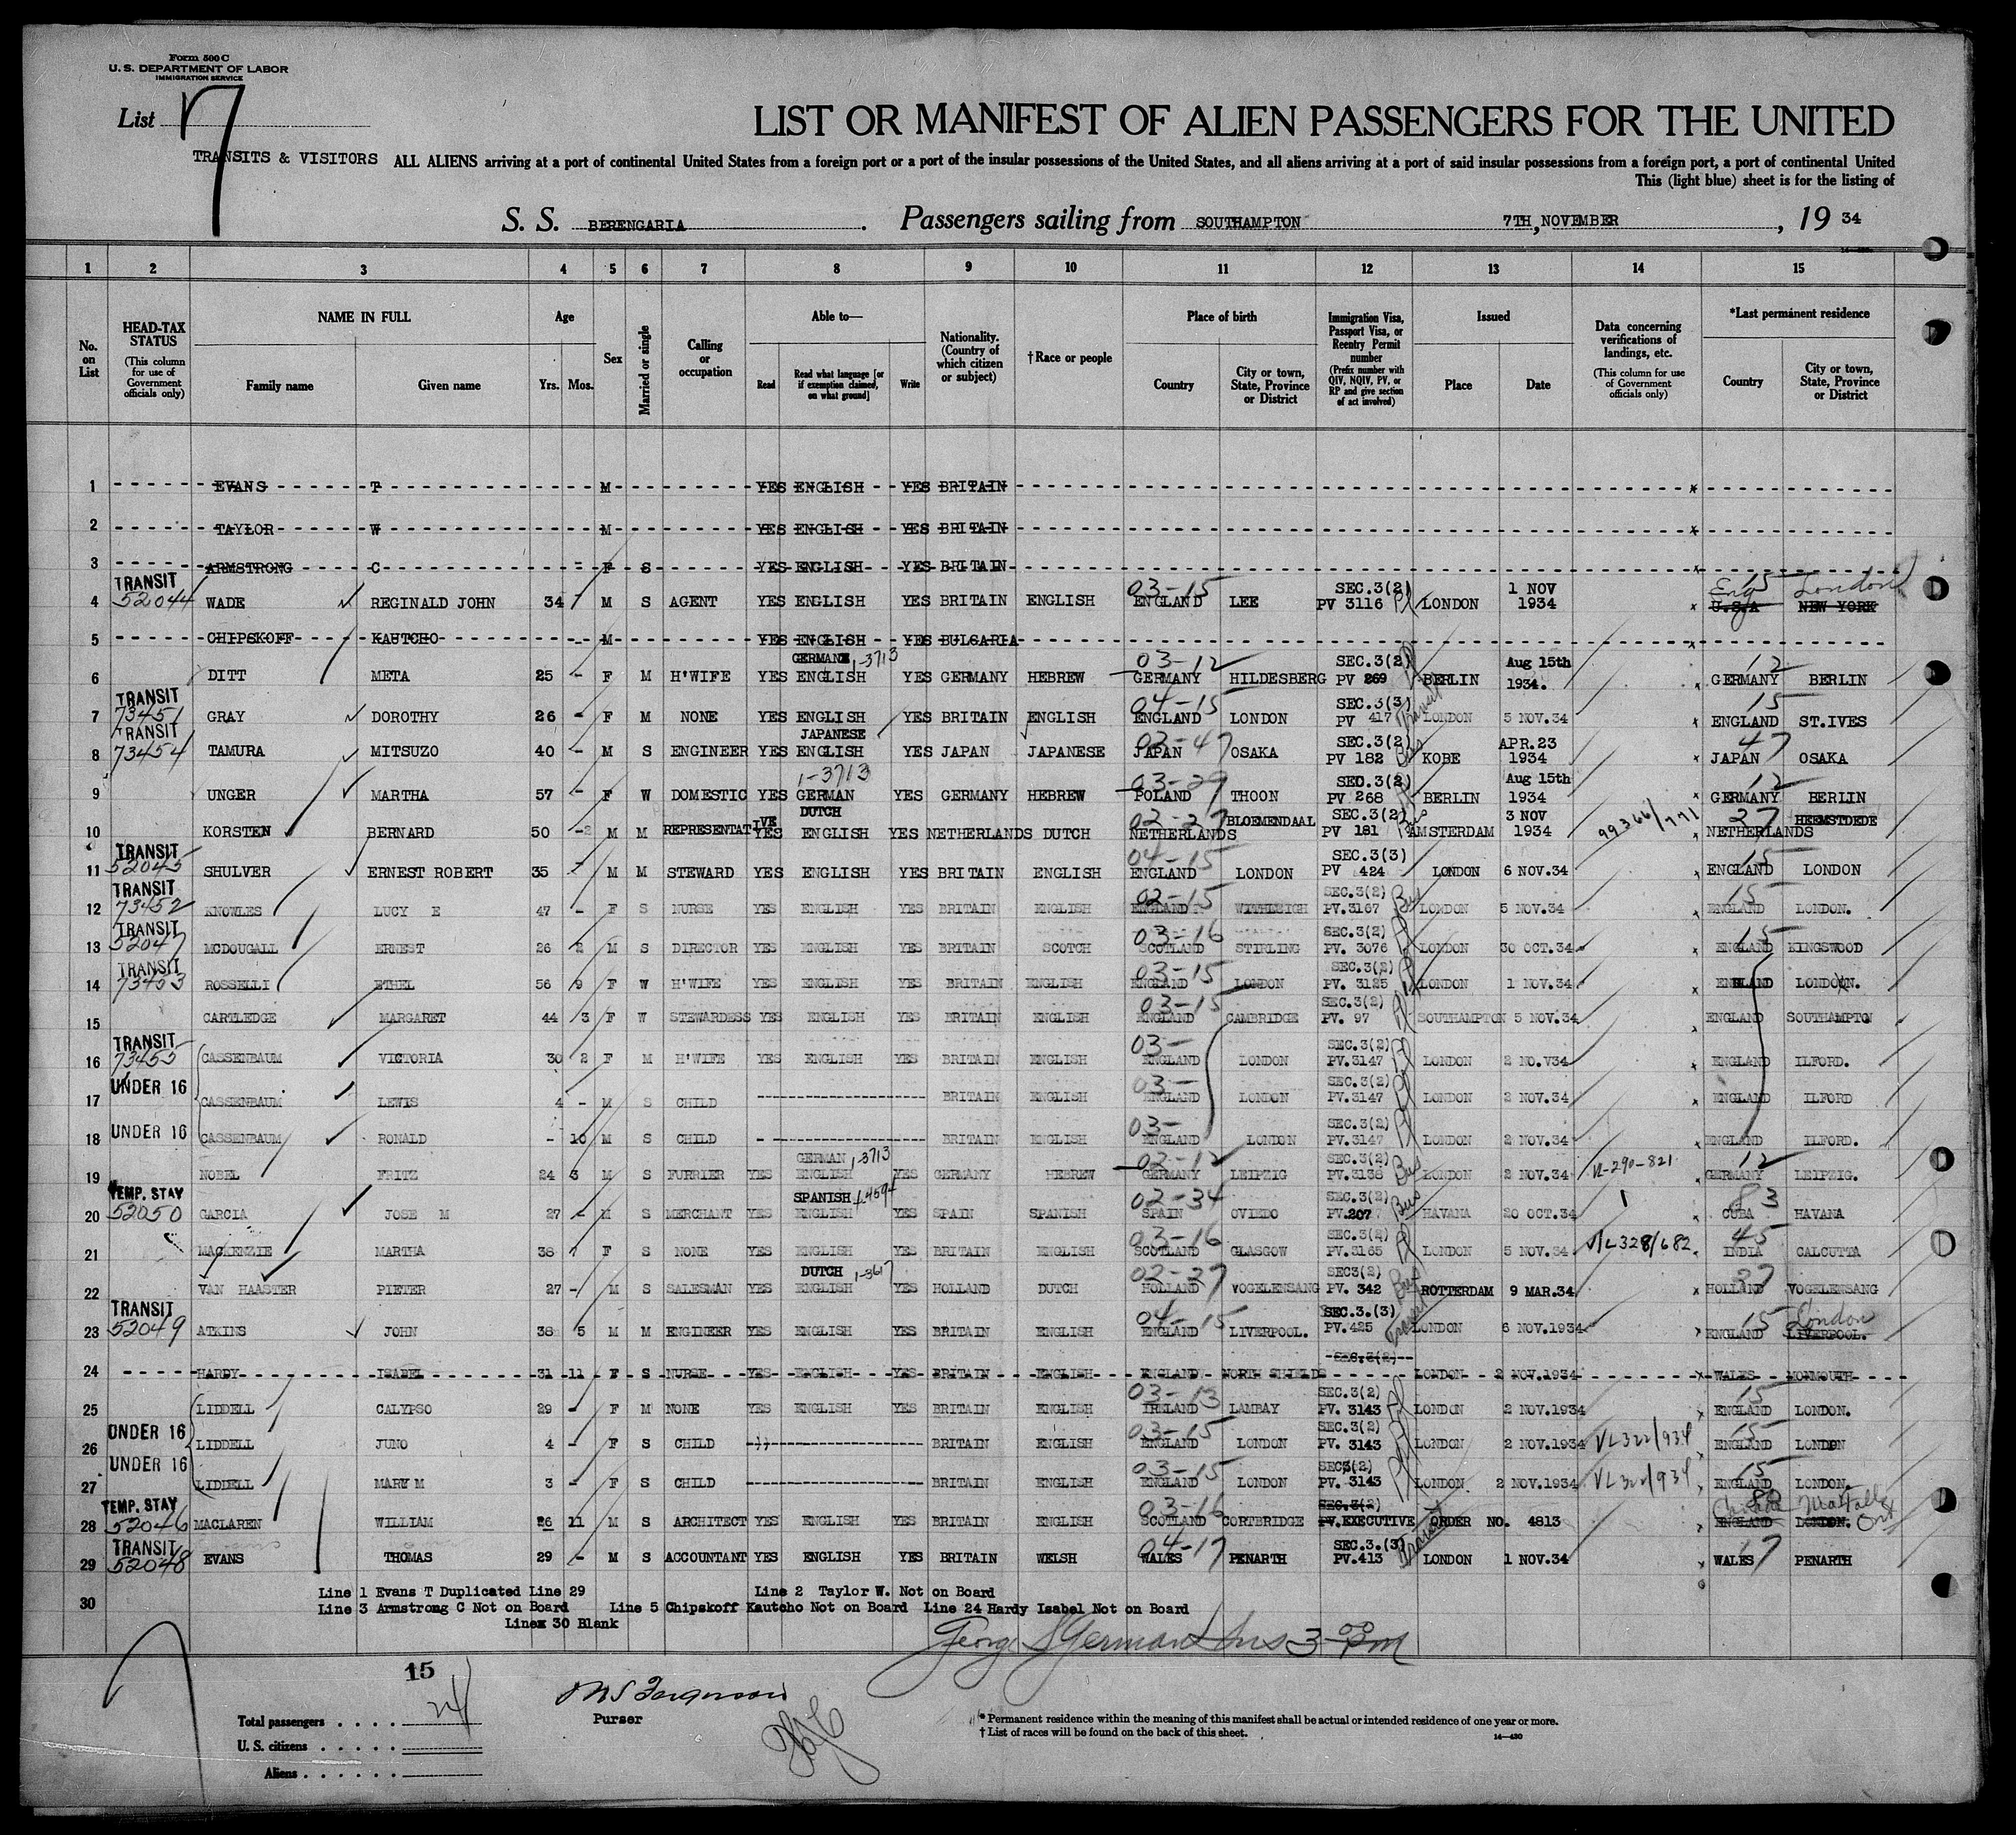 Form 500 C
U. S. DEPARTMENT OF LABOR
IMMIGRATION SERVICE
List 7
LIST OR MANIFEST OF ALIEN PASSENGERS FOR THE UNITED
TRANSITS & VISITORS ALL ALIENS arriving at a port of continental United States from a foreign port or a port of the insular possessions of the United States, and all aliens arriving at a port of said insular possessions from a foreign port, a port of continental United
This (light blue) sheet is for the listing of
S. S. BERENGARIA . Passengers sailing from SOUTHAMPTON 7TH, NOVEMBER , 19 34
1 2 3 4 5 6 7 8 9 10 11 12 13 14 15
No. on List
HEAD-TAX STATUS (This column for use of Government officials only)
NAME IN FULL Family name Given name
Age Yrs. Mos.
Sex
Married or single
Calling or occupation
Able to— Read Read what language [or if exemption claimed, on what ground] Write
Nationality. (Country of which citizen or subject)
†Race or people
Place of birth Country City or town, State, Province or District
Immigration Visa, Passport Visa, or Reentry Permit number (Prefix number with QIV, NQIV, PV, or RP and give section of act involved)
Issued Place Date
Data concerning verifications of landings, etc. (This column for use of Government officials only)
*Last permanent residence Country City or town, State, Province or District
1 EVANS T M YES ENGLISH YES BRITAIN x
2 TAYLOR W M YES ENGLISH YES BRITAIN x
3 ARMSTRONG C - F S YES ENGLISH YES BRITAIN x
TRANSIT 03-15 SEC.3(2) 1 NOV Eng 15 London
4 52044 WADE REGINALD JOHN 34 M S AGENT YES ENGLISH YES BRITAIN ENGLISH ENGLAND LEE PV 3116 LONDON 1934 x U.S.A NEW YORK
5 CHIPSKOFF KAUTCHO - M YES ENGLISH YES BULGARIA x
GERMAN 1-3713 03-12 SEC.3(2) Aug 15th 12
6 DITT META 25 - F M H'WIFE YES ENGLISH YES GERMANY HEBREW GERMANY HILDESBERG PV 269 BERLIN 1934. x GERMANY BERLIN
TRANSIT 04-15 SEC.3(3) 15
7 73451 GRAY DOROTHY 26 - F M NONE YES ENGLISH YES BRITAIN ENGLISH ENGLAND LONDON PV 417 Transit LONDON 5 NOV.34 x ENGLAND ST.IVES
TRANSIT JAPANESE 02-47 SEC.3(2) APR.23 47
8 73454 TAMURA MITSUZO 40 - M S ENGINEER YES ENGLISH YES JAPAN JAPANESE JAPAN OSAKA PV 182 Bus KOBE 1934 x JAPAN OSAKA
1-3713 03-29 SEC.3(2) Aug 15th 12
9 UNGER MARTHA 57 - F W DOMESTIC YES GERMAN YES GERMANY HEBREW POLAND THOON PV 268 BERLIN 1934 x GERMANY BERLIN
DUTCH 02-27 BLOEMENDAAL SEC.3(2) 3 NOV 99366/771 27 HEEMSTDEDE
10 KORSTEN BERNARD 50 - M M REPRESENTATIVE YES ENGLISH YES NETHERLANDS DUTCH NETHERLANDS PV 181 Bus AMSTERDAM 1934 NETHERLANDS
TRANSIT 04-15 SEC.3(3) 15
11 52045 SHULVER ERNEST ROBERT 35 - M M STEWARD YES ENGLISH YES BRITAIN ENGLISH ENGLAND LONDON PV 424 LONDON 6 NOV.34 x ENGLAND LONDON
TRANSIT 02-15 SEC.3(2) 15
12 73452 KNOWLES LUCY E 47 - F S NURSE YES ENGLISH YES BRITAIN ENGLISH ENGLAND WITHLEIGH PV.3167 Bus LONDON 5 NOV.34 x ENGLAND LONDON.
TRANSIT 03-16 SEC.3(2) 15
13 52047 MCDOUGALL ERNEST 26 2 M S DIRECTOR YES ENGLISH YES BRITAIN SCOTCH SCOTLAND STIRLING PV. 3076 LONDON 30 OCT.34 x ENGLAND KINGSWOOD
TRANSIT 03-15 SEC.3(2)
14 73453 ROSSELLI ETHEL 56 9 F W H'WIFE YES ENGLISH YES BRITAIN ENGLISH ENGLAND LONDON PV. 3125 LONDON 1 NOV.34 x ENGLAND LONDON.
03-15 SEC.3(2)
15 CARTLEDGE MARGARET 44 3 F W STEWARDESS YES ENGLISH YES BRITAIN ENGLISH ENGLAND CAMBRIDGE PV. 97 SOUTHAMPTON 5 NOV.34 x ENGLAND SOUTHAMPTON
TRANSIT 03- SEC.3(2)
16 73455 CASSENBAUM VICTORIA 30 2 F M H'WIFE YES ENGLISH YES BRITAIN ENGLISH ENGLAND LONDON PV.3147 LONDON 2 NO.V34 x ENGLAND ILFORD.
UNDER 16 03- SEC.3(2)
17 CASSENBAUM LEWIS 4 - M S CHILD BRITAIN ENGLISH ENGLAND LONDON PV.3147 LONDON 2 NOV.34 x ENGLAND ILFORD
UNDER 16 03- SEC.3(2)
18 CASSENBAUM RONALD - 10 M S CHILD BRITAIN ENGLISH ENGLAND LONDON PV.3147 LONDON 2 NOV.34 x ENGLAND ILFORD.
GERMAN 1-3713 02-12 SEC.3(2) 12
19 NOBEL FRITZ 24 3 M S FURRIER YES ENGLISH YES GERMANY HEBREW GERMANY LEIPZIG PV.3138 Bus LONDON 2 NOV.34 VL-290-821 GERMANY LEIPZIG.
TEMP. STAY SPANISH 02-34 SEC.3(2) 1 83
20 52050 GARCIA JOSE M 27 - M S MERCHANT YES ENGLISH YES SPAIN SPANISH SPAIN OVIEDO PV.207 Bus HAVANA 20 OCT.34 x CUBA HAVANA
03-16 SEC.3(2) 45
21 MACKENZIE MARTHA 38 7 F S NONE YES ENGLISH YES BRITAIN ENGLISH SCOTLAND GLASGOW PV.3165 LONDON 5 NOV.34 VL328/682 INDIA CALCUTTA
DUTCH 1-3617 02-27 SEC3(2) 27
22 VAN HAASTER PIETER 27 - M S SALESMAN YES ENGLISH YES HOLLAND DUTCH HOLLAND VOGELENSANG PV. 342 Bus ROTTERDAM 9 MAR.34 x HOLLAND VOGELENSANG
TRANSIT 04-15 SEC.3.(3) 15 London
23 52049 ATKINS JOHN 38 5 M M ENGINEER YES ENGLISH YES BRITAIN ENGLISH ENGLAND LIVERPOOL. PV.425 Transit LONDON 6 NOV.1934 x ENGLAND LIVERPOOL.
SEC.3(2)
24 HARDY ISABEL 31 11 F S NURSE YES ENGLISH YES BRITAIN ENGLISH ENGLAND NORTH SHIELDS LONDON 2 NOV.1934 x WALES MONMOUTH
03-13 SEC.3(2) 15
25 LIDDELL CALYPSO 29 - F M NONE YES ENGLISH YES BRITAIN ENGLISH IRELAND LAMBAY PV. 3143 LONDON 2 NOV.1934 x ENGLAND LONDON.
UNDER 16 03-15 SEC.3(2) 15
26 LIDDELL JUNO 4 - F S CHILD BRITAIN ENGLISH ENGLAND LONDON PV. 3143 LONDON 2 NOV.1934 VL322/934 ENGLAND LONDON
UNDER 16 03-15 SEC3(2) 15
27 LIDDELL MARY M 3 - F S CHILD BRITAIN ENGLISH ENGLAND LONDON PV. 3143 LONDON 2 NOV.1934 VL322/934 ENGLAND LONDON.
TEMP. STAY 03-16 SEC.3(2) Ont
28 52046 MACLAREN WILLIAM 26 11 M S ARCHITECT YES ENGLISH YES BRITAIN ENGLISH SCOTLAND CORTBRIDGE PV.EXECUTIVE ORDER NO. 4813 x ENGLAND LONDON.
TRANSIT 04-17 SEC.3.(3) 17
29 52048 EVANS THOMAS 29 - M S ACCOUNTANT YES ENGLISH YES BRITAIN WELSH WALES PENARTH PV.413 Transit LONDON 1 NOV.34 x WALES PENARTH
Line 1 Evans T Duplicated Line 29 Line 2 Taylor W. Not on Board
30 Line 3 Armstrong C Not on Board Line 5 Chipskoff Kautcho Not on Board Line 24 Hardy Isabel Not on Board
Linex 30 Blank
George S German Ins 3 00 PM
15
Total passengers . . . . 24
Purser
U. S. citizens . . . . .
Aliens . . . . . .
* Permanent residence within the meaning of this manifest shall be actual or intended residence of one year or more.
† List of races will be found on the back of this sheet.
14—430